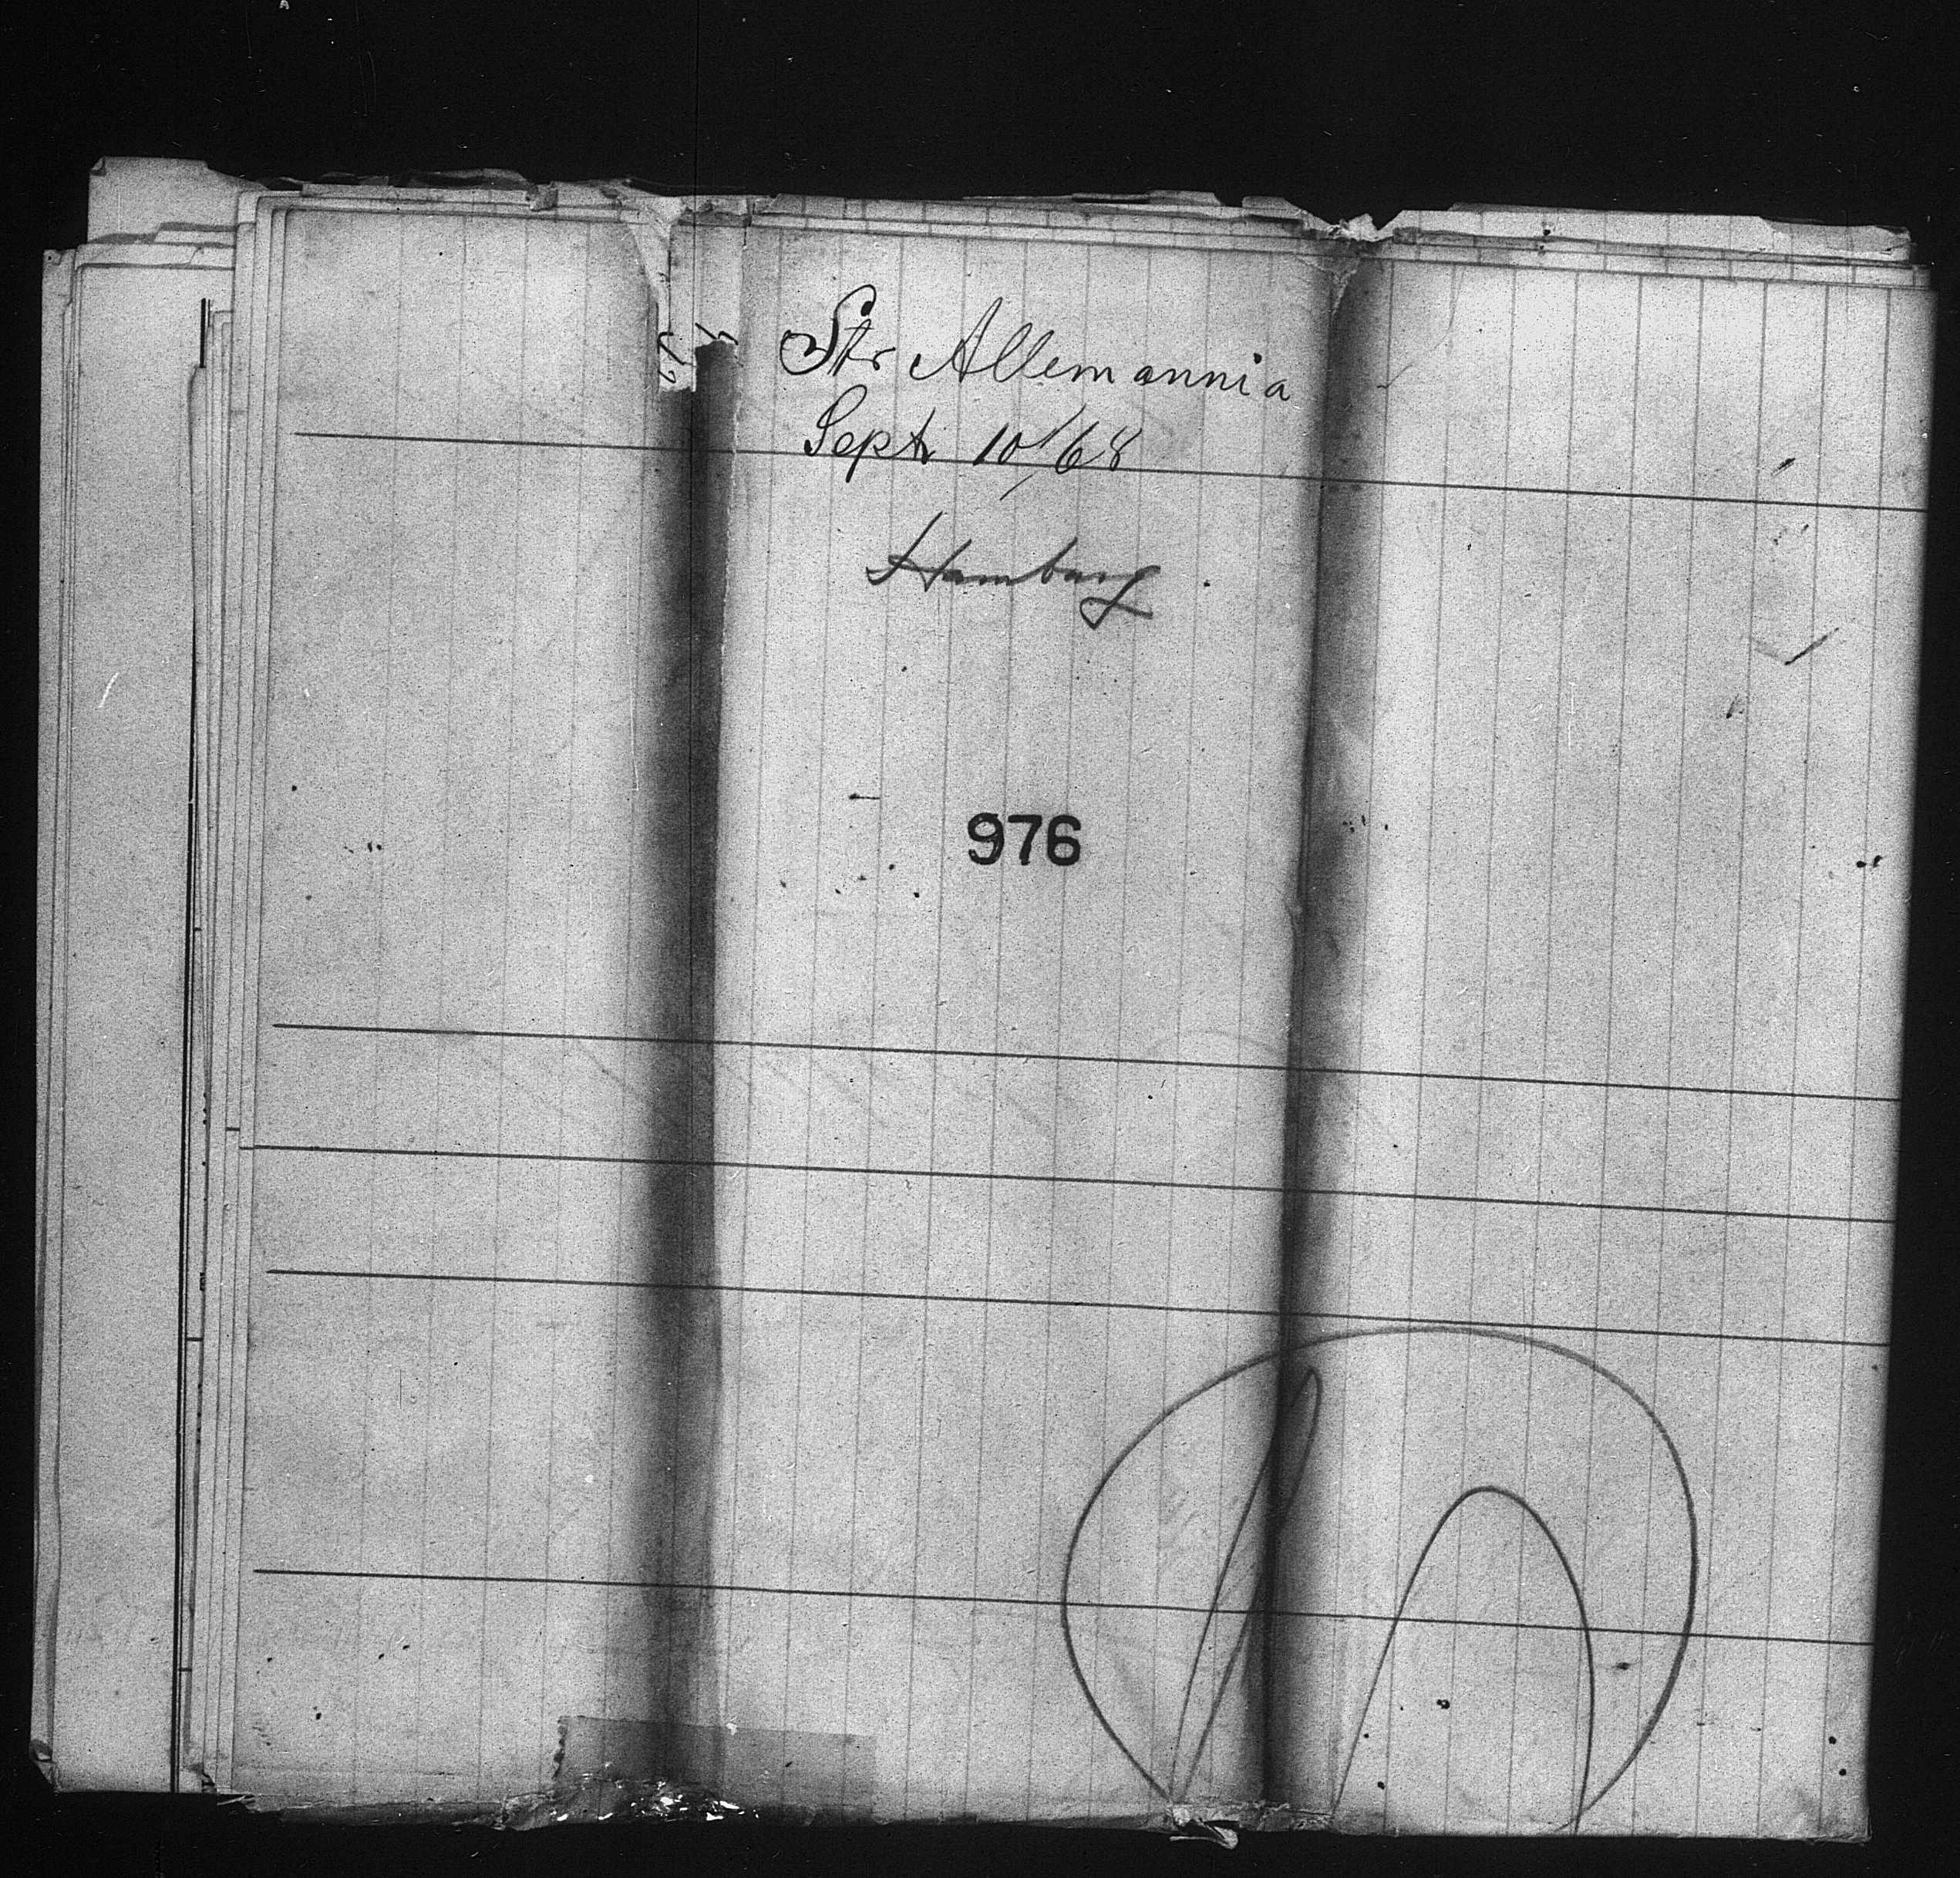 Str Allemannia
Sept 10/68
Hamburg
976